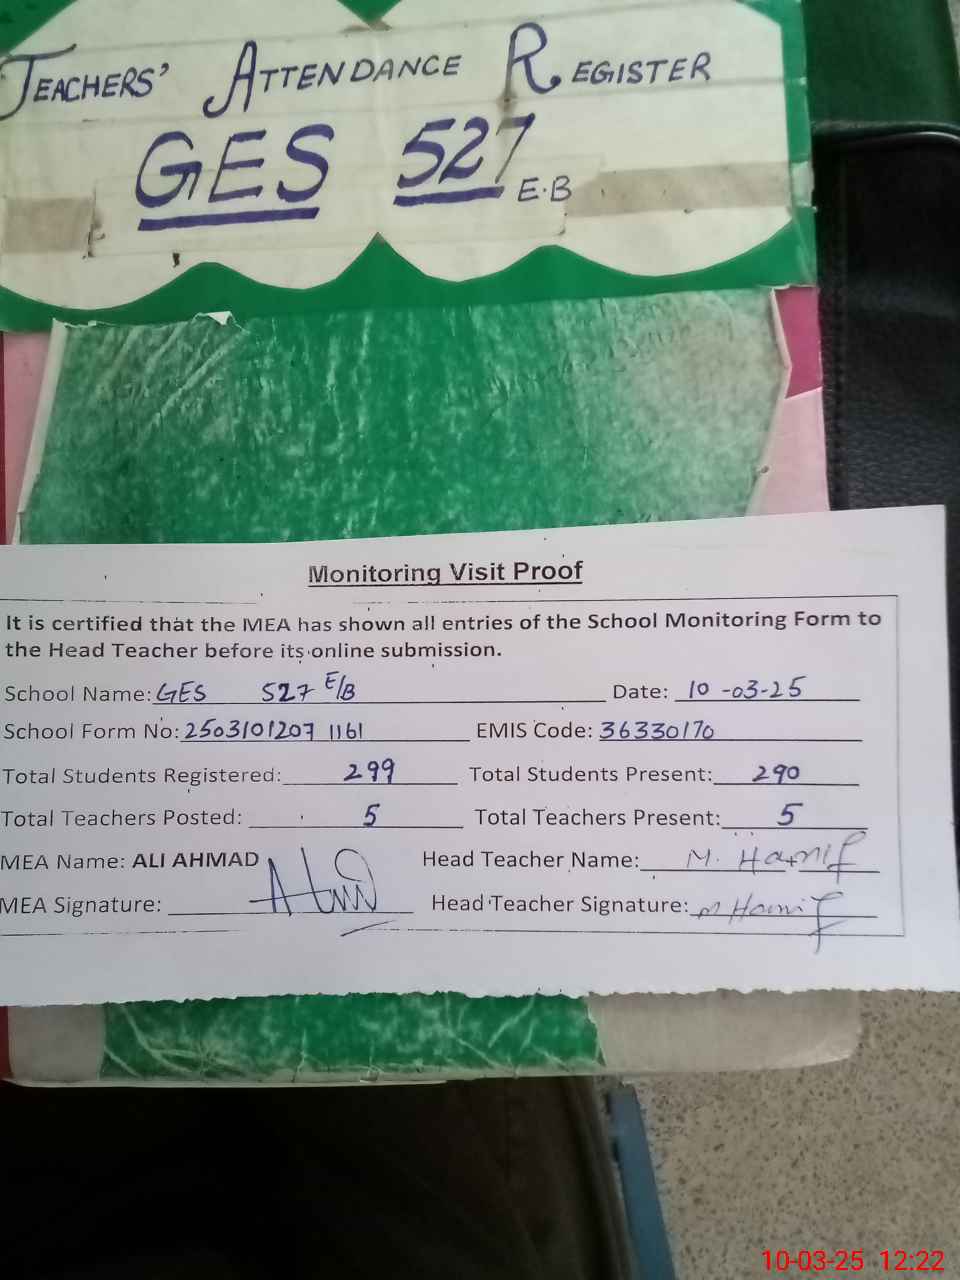 TEACHERS' ATTENDANCE REGISTER
GES 527 E.B
Monitoring Visit Proof
It is certified that the MEA has shown all entries of the School Monitoring Form to
the Head Teacher before its online submission.
School Name: GES 527 E/B Date: 10-03-25
School Form No: 2503101207 1161 EMIS Code: 36330170
Total Students Registered: 299 Total Students Present: 290
Total Teachers Posted: 5 Total Teachers Present: 5
MEA Name: ALI AHMAD Head Teacher Name: M. Hanif
MEA Signature: Head Teacher Signature: M Hanif
10-03-25 12:22